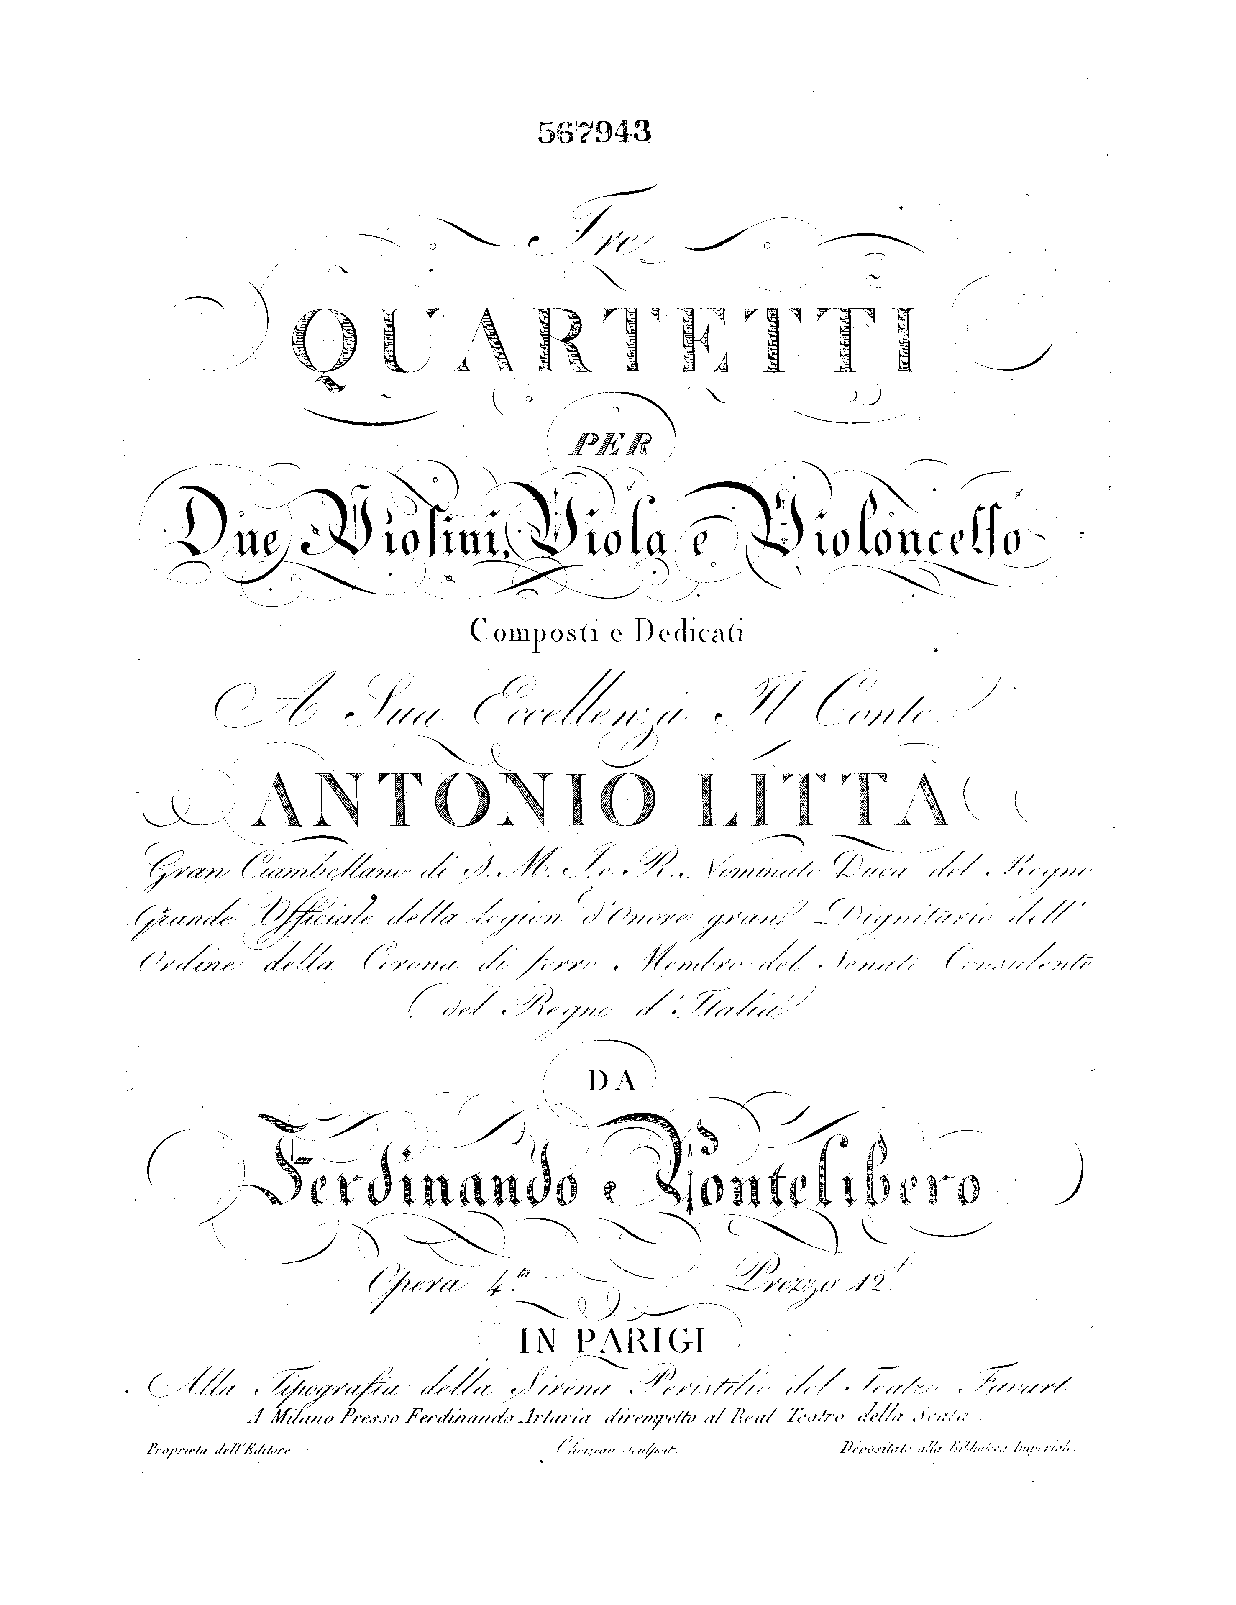 567943
Tre
QUARTETTI
PER
Due Violini, Viola e Violoncello
Composti e Dedicati
A Sua Eccellenza Il Conte
ANTONIO LITTA
Gran Ciambellano di S. M. I. e R. Nominato Duca del Regno
Grande Officiale della legion d'Onore gran Dignitario dell'
Ordine della Corona di ferro Membro del Senato Consulente
del Regno d'Italia
DA
Ferdinando e Pontelibero
Opera 4.
Prezzo 12
IN PARIGI
Alla Tipografia della Sirena Peristilio del Teatro Favart
A Milano Presso Ferdinando Artaria dirempetto al Real Teatro della Scala.
Proprieta dell'Editore
sculpsit
Depositato alla Biblioteca Imperiale